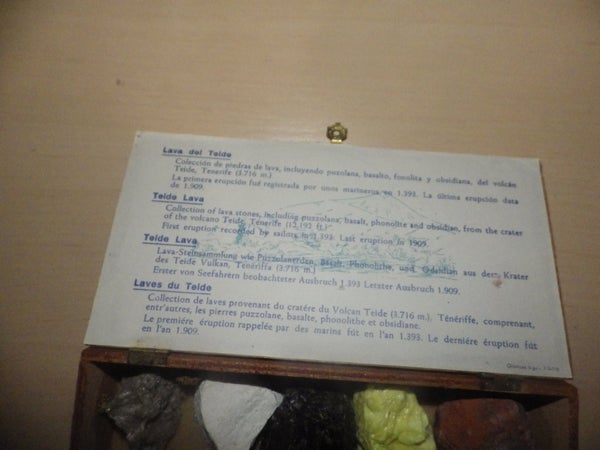 Lava del Teide
Colección de piedras de lava, incluyendo puzolana, basalto, fonolita y obsidiana, del volcán
Teide, Tenerife (3.716 m.)
La primera erupción fué registrada por unos marineros en 1.393. La última erupción data
de 1.909.
Teide Lava
Collection of lava stones, including puzzolana, basalt, phonolite and obsidian, from the crater
of the volcano Teide, Tenerife (12,192 ft.)
First eruption recorded by sailors in 1.393. Last eruption in 1909.
Teide Lava
Lava-Steinsammlung wie Puzzolanerden, Basalt, Phonolithe, und Obsidian aus dem Krater
des Teide Vulkan, Teneriffa (3.716 m.)
Erster von Seefahrern beobachteter Ausbruch 1.393 Letzter Ausbruch 1.909.
Laves du Teide
Collection de laves provenant du cratére du Volcan Teide (3.716 m.), Ténériffe, comprenant,
entr'autres, les pierres puzzolane, basalte, phonolithe et obsidiane.
Le premiére éruption rappelée par des marins fút en l'an 1.393. Le derniére éruption fút
en l'an 1.909.